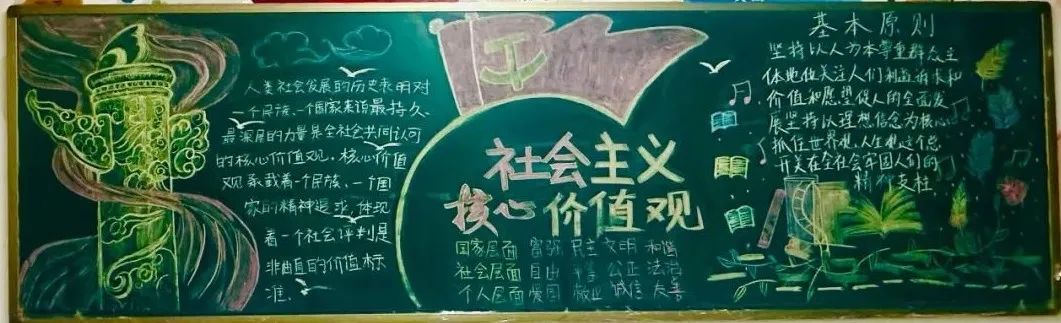 人类社会发展的历史表明对
一个民族、一个国家来说最持久、
最深层的力量是全社会共同认可
的核心价值观。核心价值
观承载着一个民族、一个国
家的精神追求,体现
着一个社会评判是
非曲直的价值标
准.
社会主义
核心价值观
国家层面 富强 民主 文明 和谐
社会层面 自由 平等 公正 法治
个人层面 爱国 敬业 诚信 友善
基本原则
坚持以人为本尊重群众主
体地位关注人们利益诉求和
价值和愿望促人的全面发
展坚持以理想信念为核心
抓住世界观,人生观这个总
开关在全社会牢固人们的
精神支柱